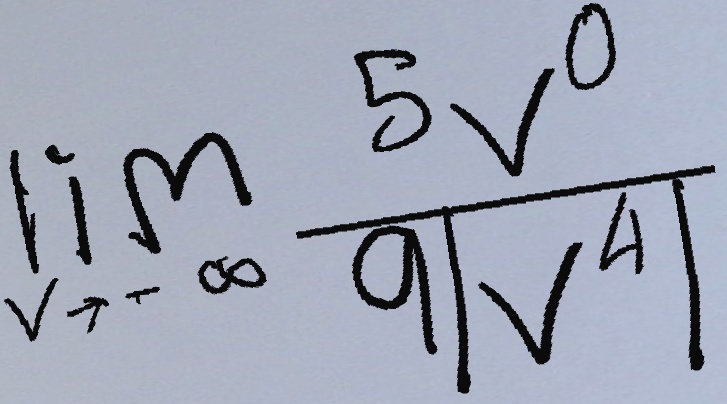 lim_{v→-∞} \frac{5v^0}{9|v^4|}